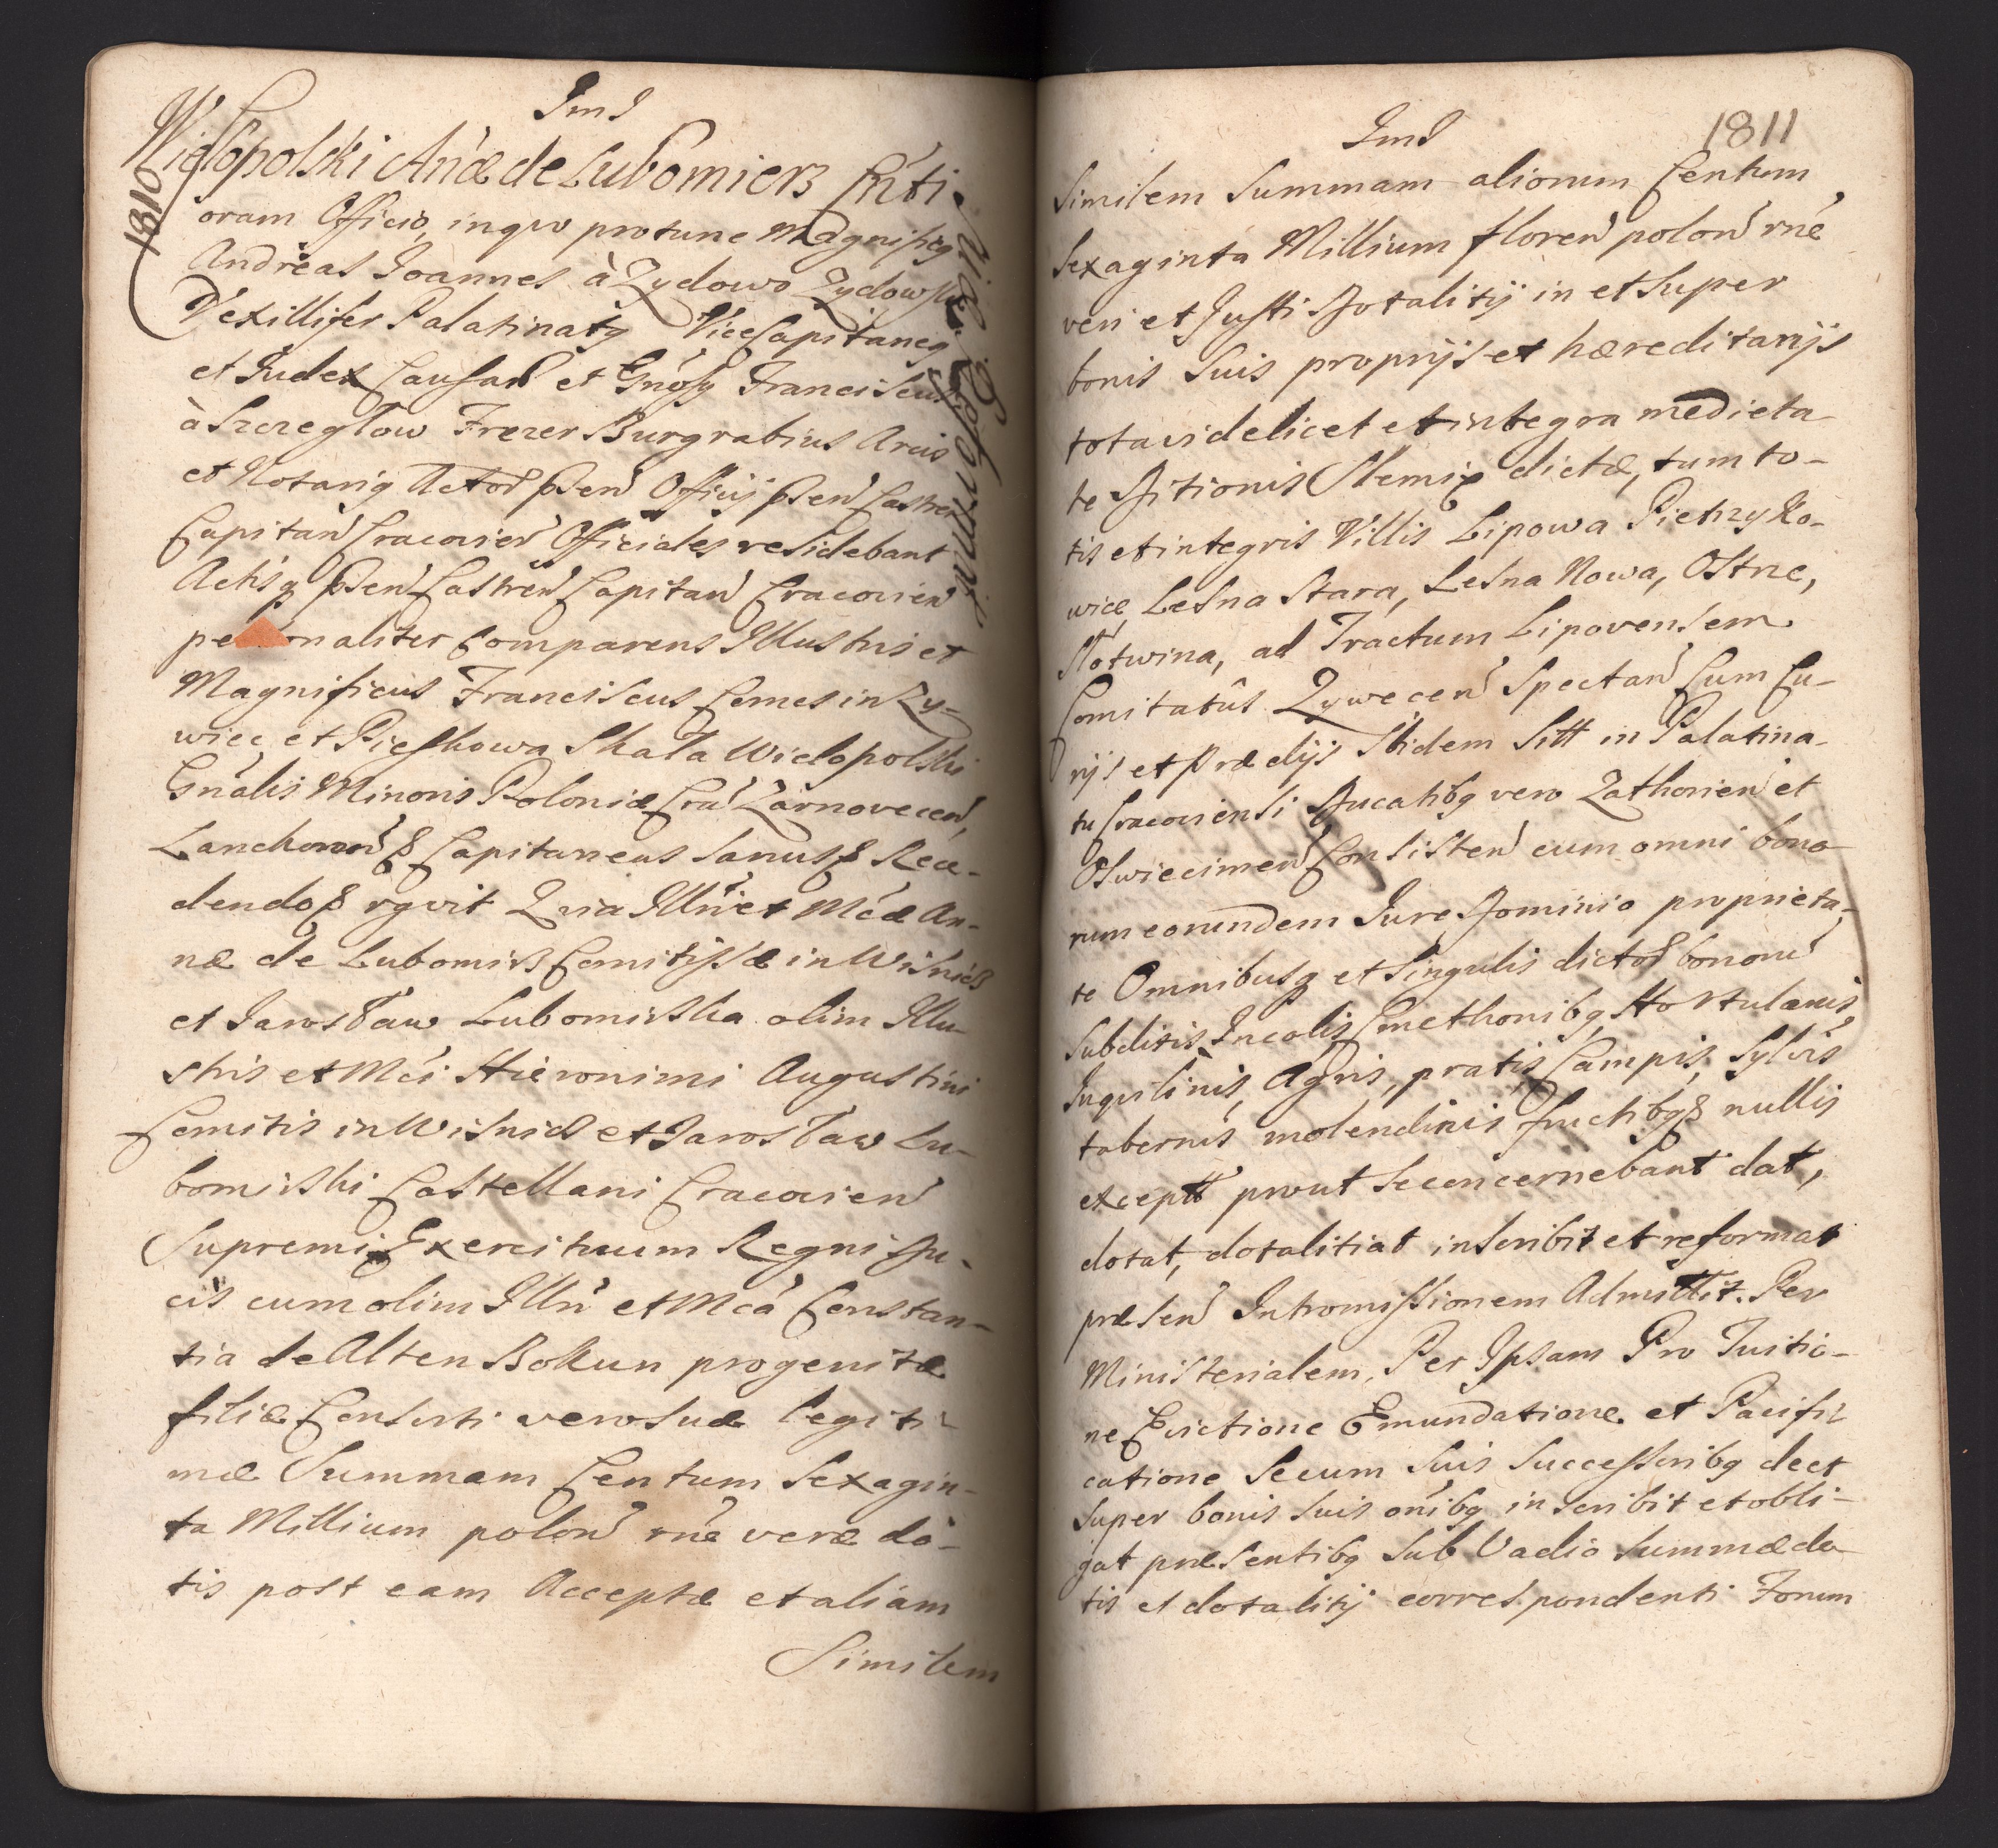 Jnd
1810
Wielopolski Añæ de Lubomiers Coñti
oram Officio, inquo protunc Magnificq
Andreas Joannes à Zydowo Zydowski
Vexillifer Palatinatq ViceCapitaneq
et Judex Causar et Gñosq Franciscus
à Szczegłow Frezer Burgrabius Arcis
et Notariq Actor pñen Officij pñen Castren
Capitan Cracovien Officiales residebant
Actisq pñen Castren Capitan Cracovien
personaliter Comparens Illustris et
Magnificus Franciscus Comes in Zy-
wiec et Pieskowa Skała Wielopolski
Gñalis Minoris Poloniæ Cra Zarnovecen,
Lanckoron & Capitaneus sanus & Rece-
dendo & rgvit Qvia Illri et Mcæ An-
næ de Lubomirs Comitissæ in Wisnicz
et Jarosław Lubomirska olim Illu-
stris et Mci Hieronimi Augustini
Comitis in Wisnicz et Jarosław Lu-
bomirski Castellani Cracovien
Supremi Exercituum Regni Du-
cis cum olim Illri et Mca Constan-
tia de Alten Bokun progenitæ
filiæ Consorti vero suæ legiti-
mæ Summam Centum Sexagin-
ta Millium polon rñe veræ do-
tis post eam Acceptæ et aliam
Similem
Jnd
1811
Similem Summam aliorum Centum
Sexaginta Millium floren polon rñe
veri et Justi Dotalitij in et Super
bonis Suis proprijs et hæreditarijs
tota videlicet et integra medieta-
te Ditionis Slemiȩ dictæ, tum to-
tis et integris Villis Lipowa Pietrzyko-
wice Lesna Stara, Lesna Nowa, Ostre,
Słotwina, ad Tractum Lipovensem
Comitatûs Zywecen Spectan Cum Cu-
rijs et Prædijs Ibidem Sitt in Palatina-
tu Cracoviensi Ducatibq vero Zathorien et
Oswiecimen Consisten cum omni bono-
rum eorundem Jure Dominio proprieta-
te Omnibusq et Singulis dictor bonoru
Subditis Incolis Cmethonibq, Hortulanis,
Inquilinis, Agris, pratis, Campis, Sylvis
tabernis molendinis fructibq & nullis
exceptt prout se concernebant dat,
dotat, dotalitiat inscribit et reformat
præsen Intromissionem Admittit. Per
Ministerialem, Per Ipsam Pro Tuitio-
ne Evictione Emundatione et Pacifi-
catione Secum Suis Successoribq deet
Super bonis Suis oñibq inscribit et obli-
gat præsentibq Sub Vadio Summæ do-
tis et dotalitij correspondenti Forum